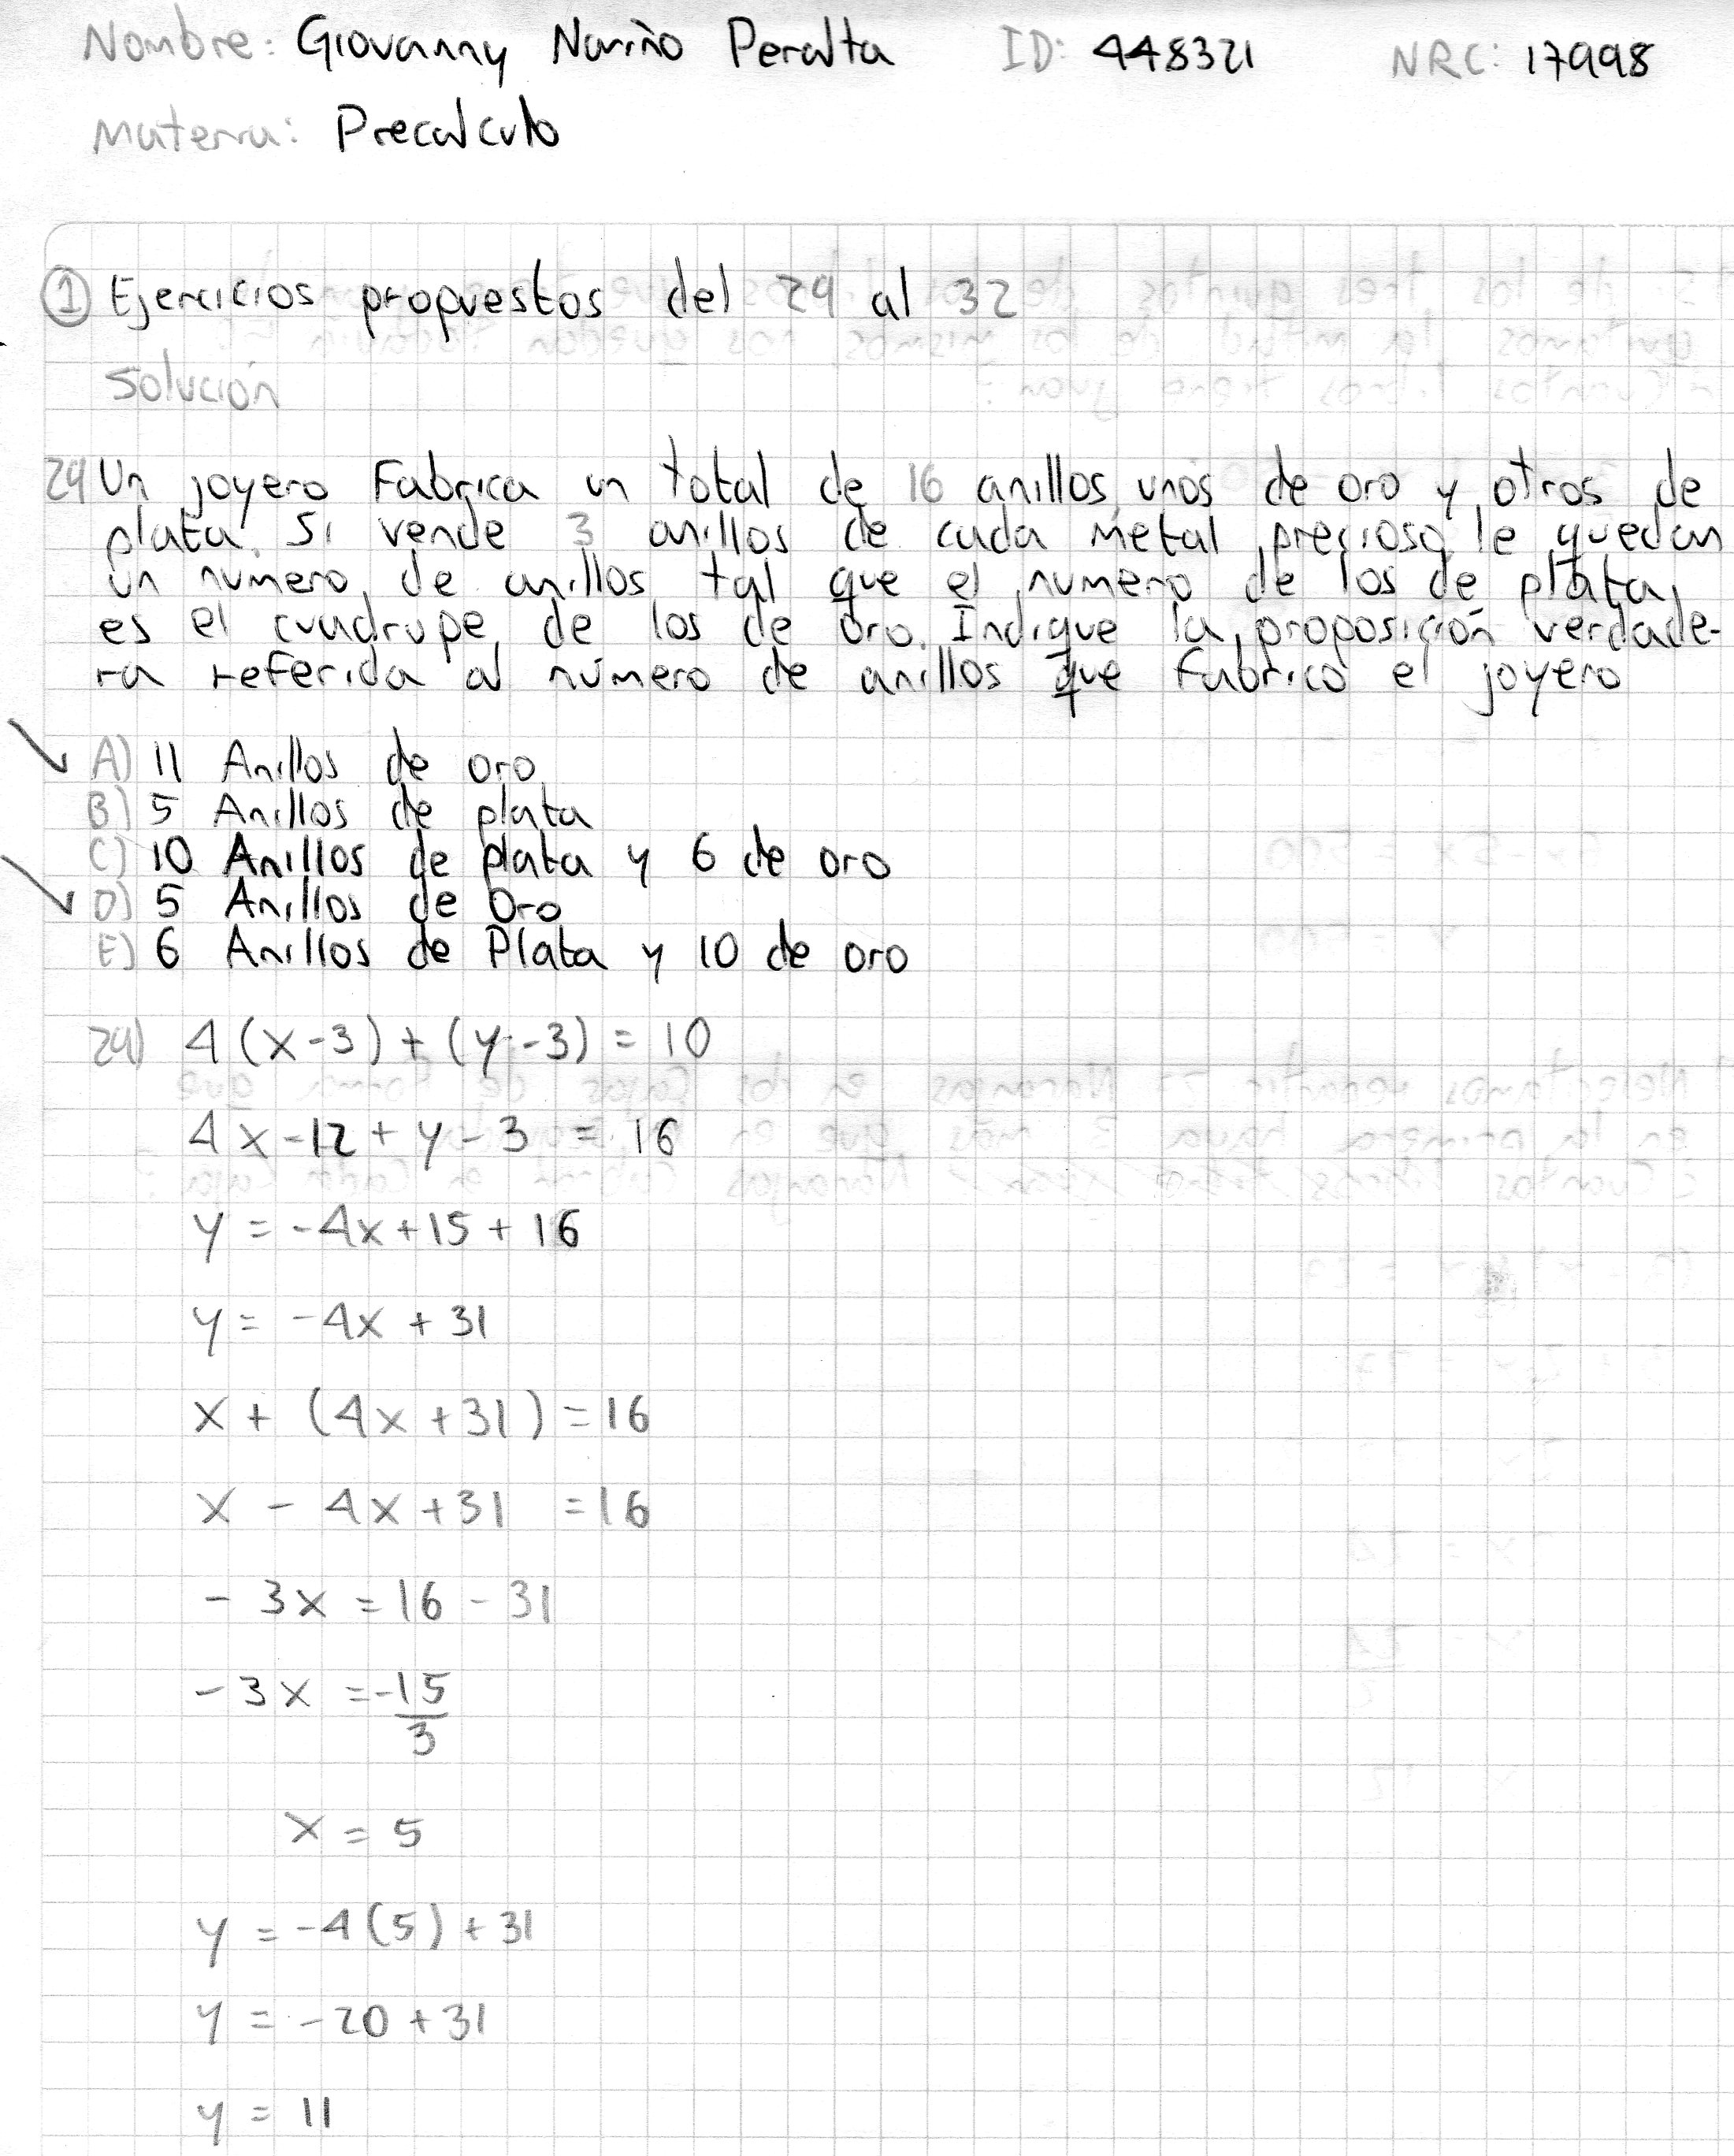 Nombre: Giovanny Nariño Peralta ID: 448321 NRC: 17998
Materia: Precalculo
① Ejercicios propuestos del 29 al 32
Solución
29 Un joyero Fabrica un total de 16 anillos unos de oro y otros de
plata. Si vende 3 anillos de cada metal precioso le quedan
un numero de anillos tal que el numero de los de plata
es el cuadrupe de los de oro. Indique la proposición verdade-
ra referida al número de anillos que fabrico el joyero
A) 11 Anillos de oro
B) 5 Anillos de plata
C) 10 Anillos de plata y 6 de oro
D) 5 Anillos de Oro
E) 6 Anillos de Plata y 10 de oro
29) 4(x-3)+(y-3)=10
4x-12+y-3=16
y=-4x+15+16
y=-4x+31
x+(4x+31)=16
x-4x+31=16
-3x=16-31
-3x=-15/3
x=5
y=-4(5)+31
y=-20+31
y=11